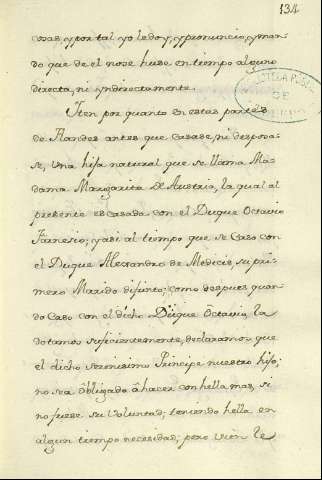 134
cosas, y por tal yo ledo y, y pronuncio, y man-
do que de el nose huse en tiempo alguno
directa, ni yndirectamente.
Yten por quanto en estas partes
de Flandes antes que casase, ni desposa-
se, una hija natural que se llama Ma-
dama Margarita de Austria, la qual al
presente es casada con el Duque Octavio
Farnesio; y asi al tiempo que se Caso con
el Duque Alecsandro de Medicis, su pri-
mero Marido difunto; como despues quan-
do Caso con el dicho Duque Octavio, la
dotamos suficientemente, declaramos que
el dicho serenisimo Principe nuestro hijo,
no sea obligado â hacer con hella mas, si
no fuese su Voluntad; teniendo hella en
algun tiempo necesidad; pero vien le
DE